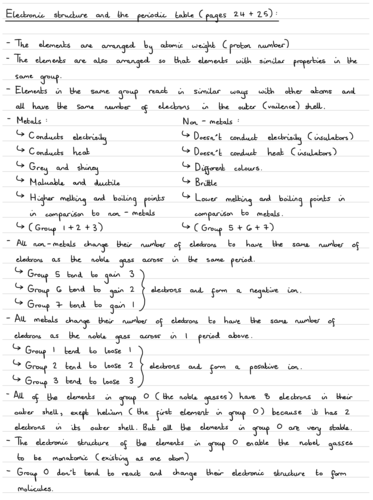 Electronic structure and the periodic table (pages 24 + 25):
- The elements are arranged by atomic weight (proton number)
- The elements are also arranged so that elements with similar properties in the
same group.
- Elements in the same group react in similar ways with other atoms and
all have the same number of electrons in the outer (vailence) shell.
- Metals:
↳ Conducts electrisity
↳ Conducts heat
↳ Grey and shiney
↳ Maluable and ductile
↳ Higher melting and boiling points
in comparison to non-metals
↳ (Group 1+2+3)
Non-metals:
↳ Doesn't conduct electrisity (insulators)
↳ Doesn't conduct heat (insulators)
↳ Different colours.
↳ Brittle
↳ Lower melting and boiling points in
comparison to metals.
↳ (Group 5+6+7)
- All non-metals change their number of electrons to have the same number of
electrons as the noble gass across in the same period.
↳ Group 5 tend to gain 3
↳ Group 6 tend to gain 2 } electrons and form a negative ion.
↳ Group 7 tend to gain 1
- All metals change their number of electrons to have the same number of
electrons as the noble gass across in 1 period above.
↳ Group 1 tend to loose 1
↳ Group 2 tend to loose 2 } electrons and form a possitive ion.
↳ Group 3 tend to loose 3
- All of the elements in group 0 (the noble gasses) have 8 electrons in their
outer shell, exept helium (the first element in group 0) because it has 2
electrons in its outer shell. But all the elements in group 0 are very stable.
- The electronic structure of the elements in group 0 enable the nobel gasses
to be monatomic (existing as one atom)
- Group 0 don't tend to react and change their electronic structure to form
molicules.